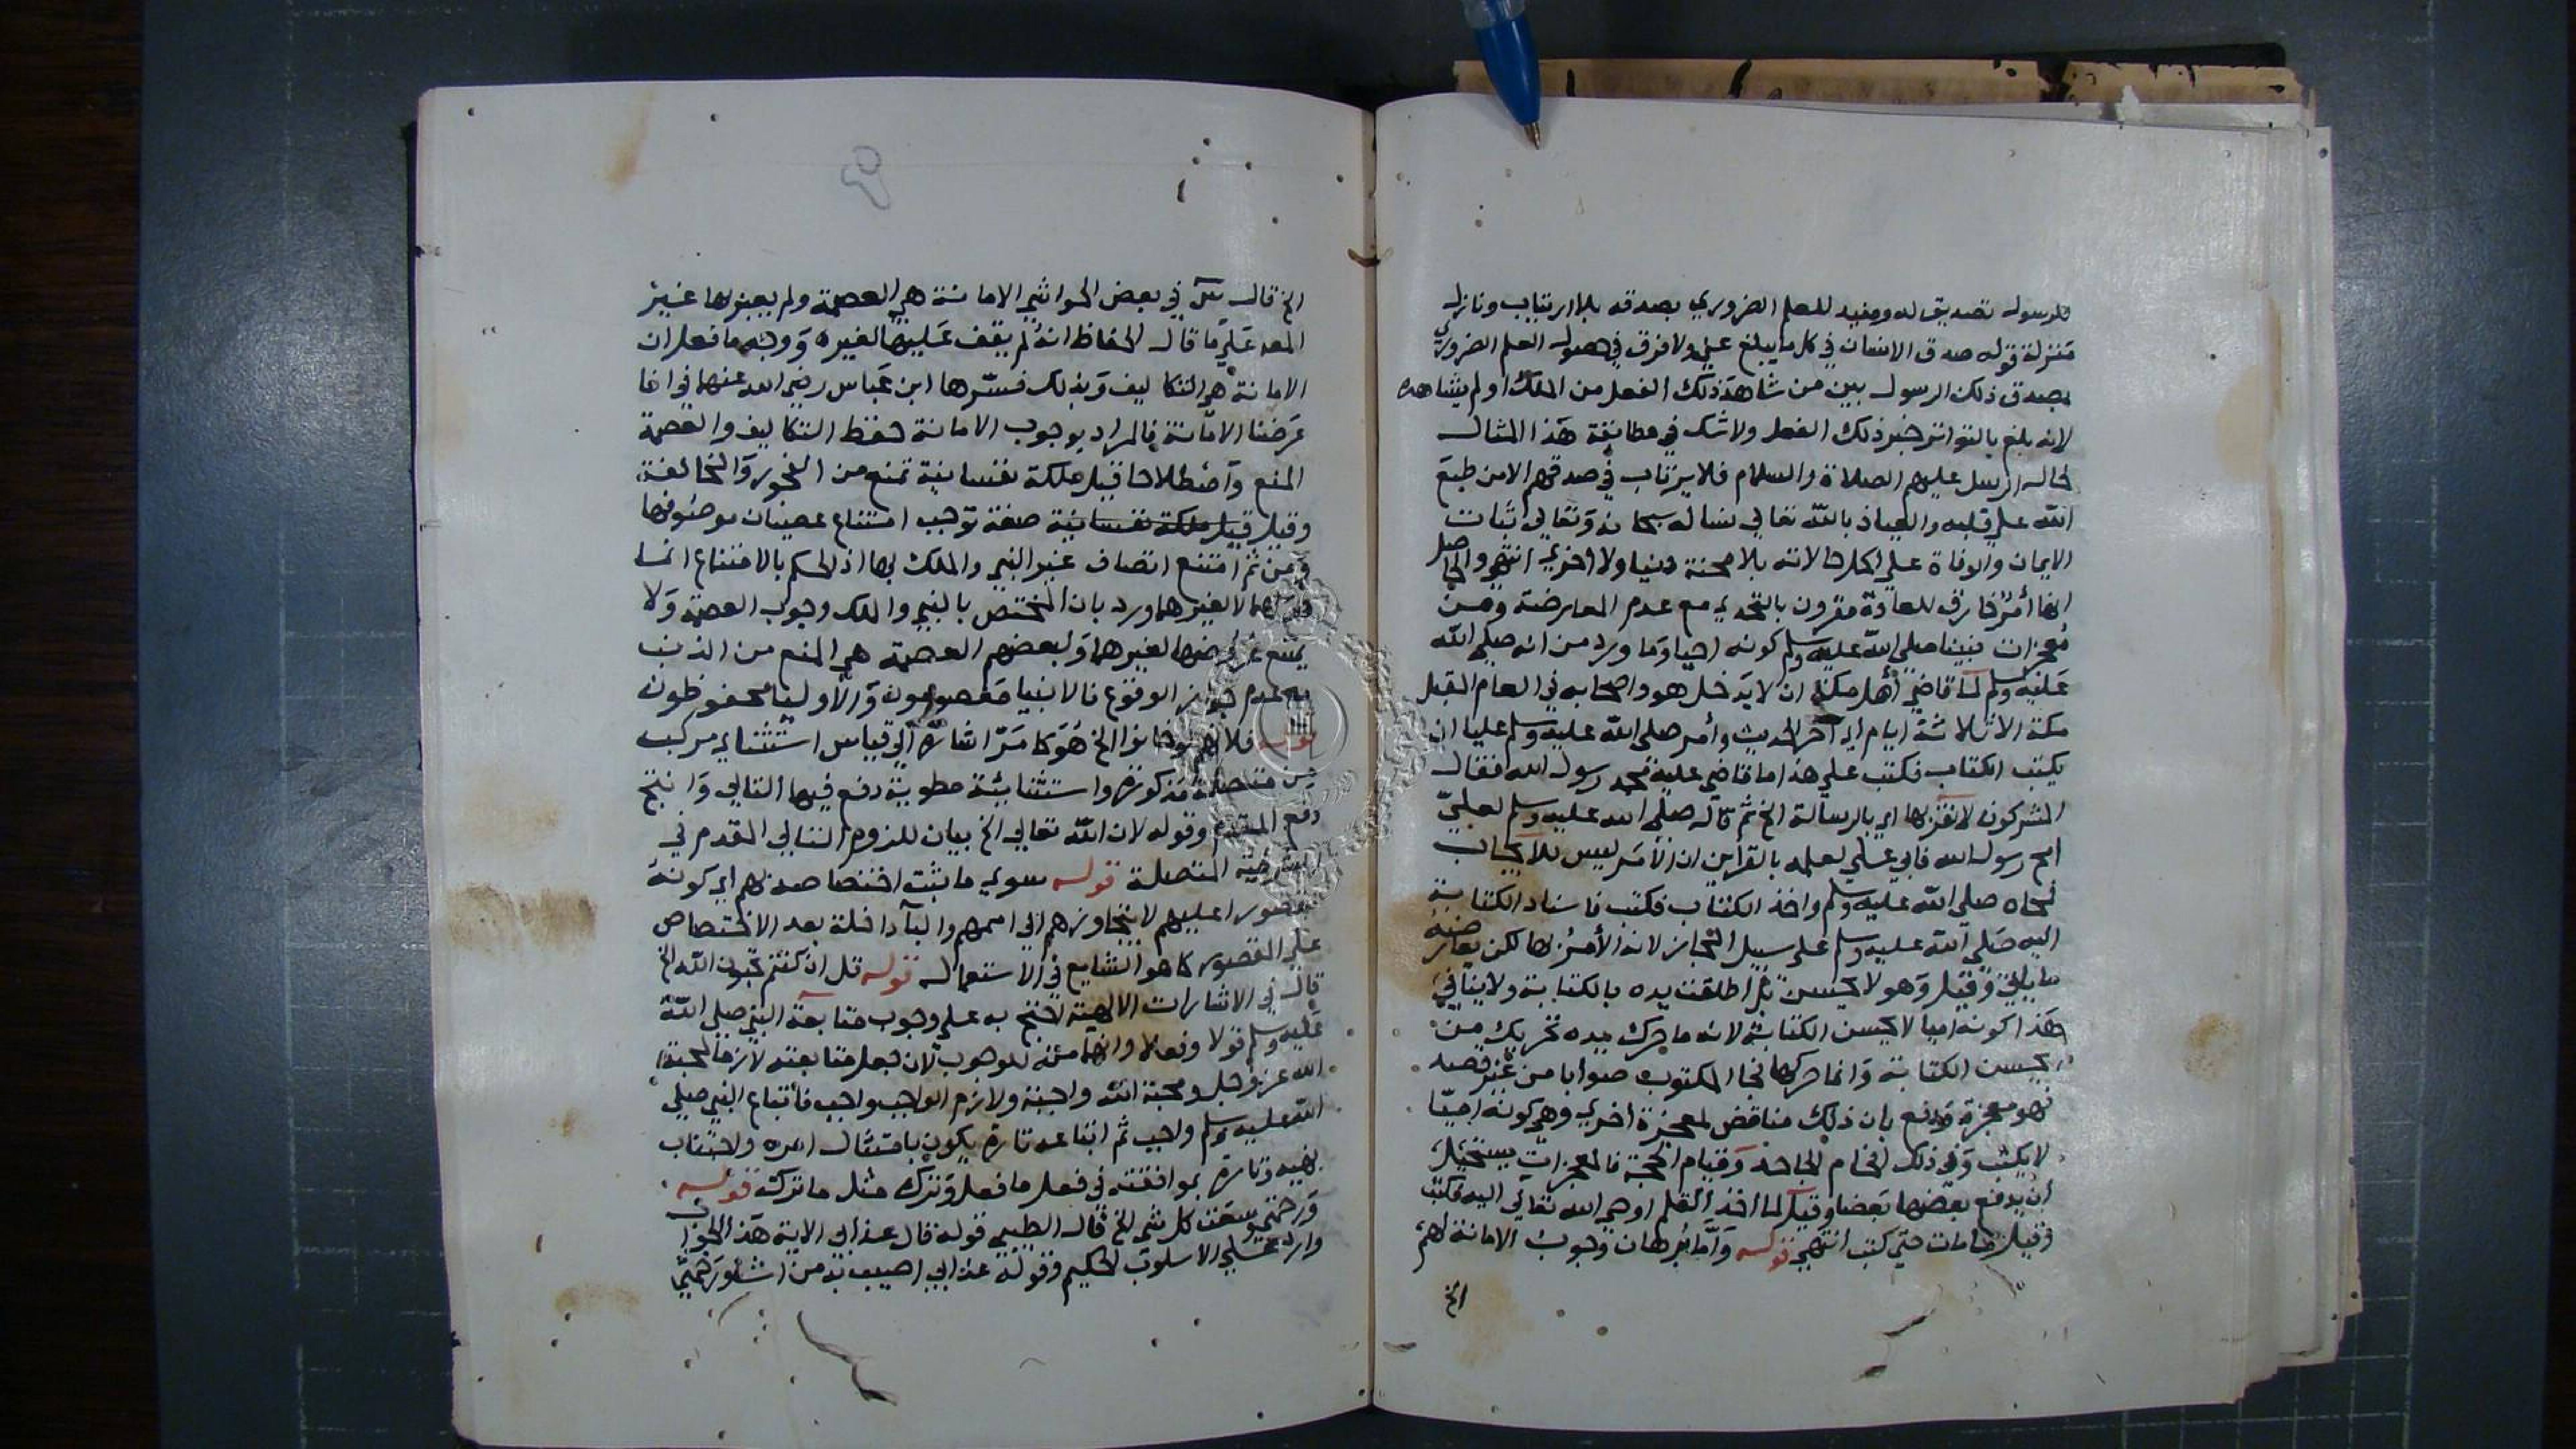 للرسول تصديق له ومفيد للعلم الضروري بصدقه بلا ارتياب ونازل
منزلة قوله صدق الانسان في كل ما يبلغ عني ولا فرق في حصول العلم الضروري
بصدق ذلك الرسول بين من شاهد ذلك الفعل من الملك او لم يشاهده
لانه بلغ بالتواتر خبر ذلك الفعل ولا شك في مطابقة هذا المثال
لحال الرسل عليهم الصلاة والسلام فلا يرتاب في صدقهم الا من طبع
الله على قلبه والعياذ بالله تعالى نساله سبحانه وتعالى ثبات
الايمان والوفاة على اكمل حالاته بلا محنة دنيا ولا اخرى انتهى والحاصل
انها أمر خارق للعادة مقرون بالتحدي مع عدم المعارضة ومن
معجزات نبينا صلى الله عليه وسلم كونه اميا وما ورد من انه صلى الله
عليه وسلم لما قاضى أهل مكة ان لا يدخل هو واصحابه في العام المقبل
مكة الا ثلاثة ايام الى آخر الحديث وأمر صلى الله عليه وسلم عليا ان
يكتب الكتاب فكتب علي هذا ما قاضى عليه محمد رسول الله فقال
المشركون لا نقر بها اي بالرسالة الخ ثم قال صلى الله عليه وسلم لعلي
امح رسول الله فابى علي لعلمه بالقراين ان الأمر ليس للايجاب
فمحاه صلى الله عليه وسلم واخذ الكتاب فكتب فاسناد الكتابة
اليه صلى الله عليه وسلم على سبيل المجاز لانه الأمر بها لكن يعارضه
ما يأتي وقيل وهو لا يحسن بل اطلقت يده بالكتابة ولا ينافي
هذا كونه اميا لا يحسن الكتابة لانه ما حرك يده تحريك من
يحسن الكتابة وانما حركها فجا المكتوب صوابا من غير قصد
فهو معجزة ودفع بان ذلك مناقض لمعجزة اخرى وهي كونه اميّا
لا يكتب وفي ذلك افحام الجاحد وقيام الحجة فالمعجزات يستحيل
أن يدفع بعضها بعضا وقيل لما اخذ القلم اوحى الله تعالى اليه فكتب
وقيل ما مات حتى كتب انتهى قوله واما برهان وجوب الامانة لهم
الخ
الخ قال في بعض الحواشي الامانة هي العصمة ولم يعبر بها غير
المص على ما قال الحفاظ انه لم يقف عليها لغيره ووجه ما فعل ان
الامانة هي التكاليف وبذلك فسرها ابن عباس رضي الله عنهما في انا
عرضنا الأمانة فالمراد بوجوب الامانة حفظ التكاليف والعصمة
المنع واصطلاحا قيل ملكة نفسانية تمنع من الفجور والمخالفة
وقيل قيل ملكة نفسانية صفة توجب امتناع عصيان موصوفها
ومن ثم امتنع اتصاف غير النبي والملك بها اذ الحكم بالامتناع انما
لهما لا لغيرهما ورد بان المختص بالنبي والملك وجوب العصمة ولا
يمتنع عروضها لغيرهما ولبعضهم العصمة هي المنع من الذنب
مع عدم جواز الوقوع فالانبيا معصومون والأوليا محفوظون
قوله فلانهم لو خانوا الخ هو كما مر اشارة الى قياس استثنايي مركب
من متصلة مذكورة واستثنائية مطوية رفع فيها التالي وانتج
رفع المقدم وقوله لان الله تعالى الخ بيان للزوم التالي المقدم في
الشرطية المتصلة قوله سوى ما ثبت اختصاصه بهم اي كونه
مقصورا عليهم لا يتجاوزهم الى اممهم والبآ داخلة بعد الاختصاص
على المقصور كما هو الشايع في الاستعمال قوله قل ان كنتم تحبون الله الخ
قال في الاشارات الالهية يحتج به على وجوب متابعة النبي صلى الله
عليه وسلم قولا وفعلا وانها مئنة للوجوب لان جعل متابعته لازما لمحبة
الله عز وجل ومحبة الله واجبة ولازم الواجب واجب فاتباع النبي صلى
الله عليه وسلم واجب ثم اتباعه تارة يكون بامتثال امره واجتناب
نهيه وتارة بموافقته في فعل ما فعل وترك مثل ما تركه قوله
ورحمتي وسعت كل شيء الخ قال الطيبي قوله قال عذابي الاية هذا الجواب
وارد على الاسلوب الحكيم وقوله عذابي اصيب به من اشاء ورحمتي